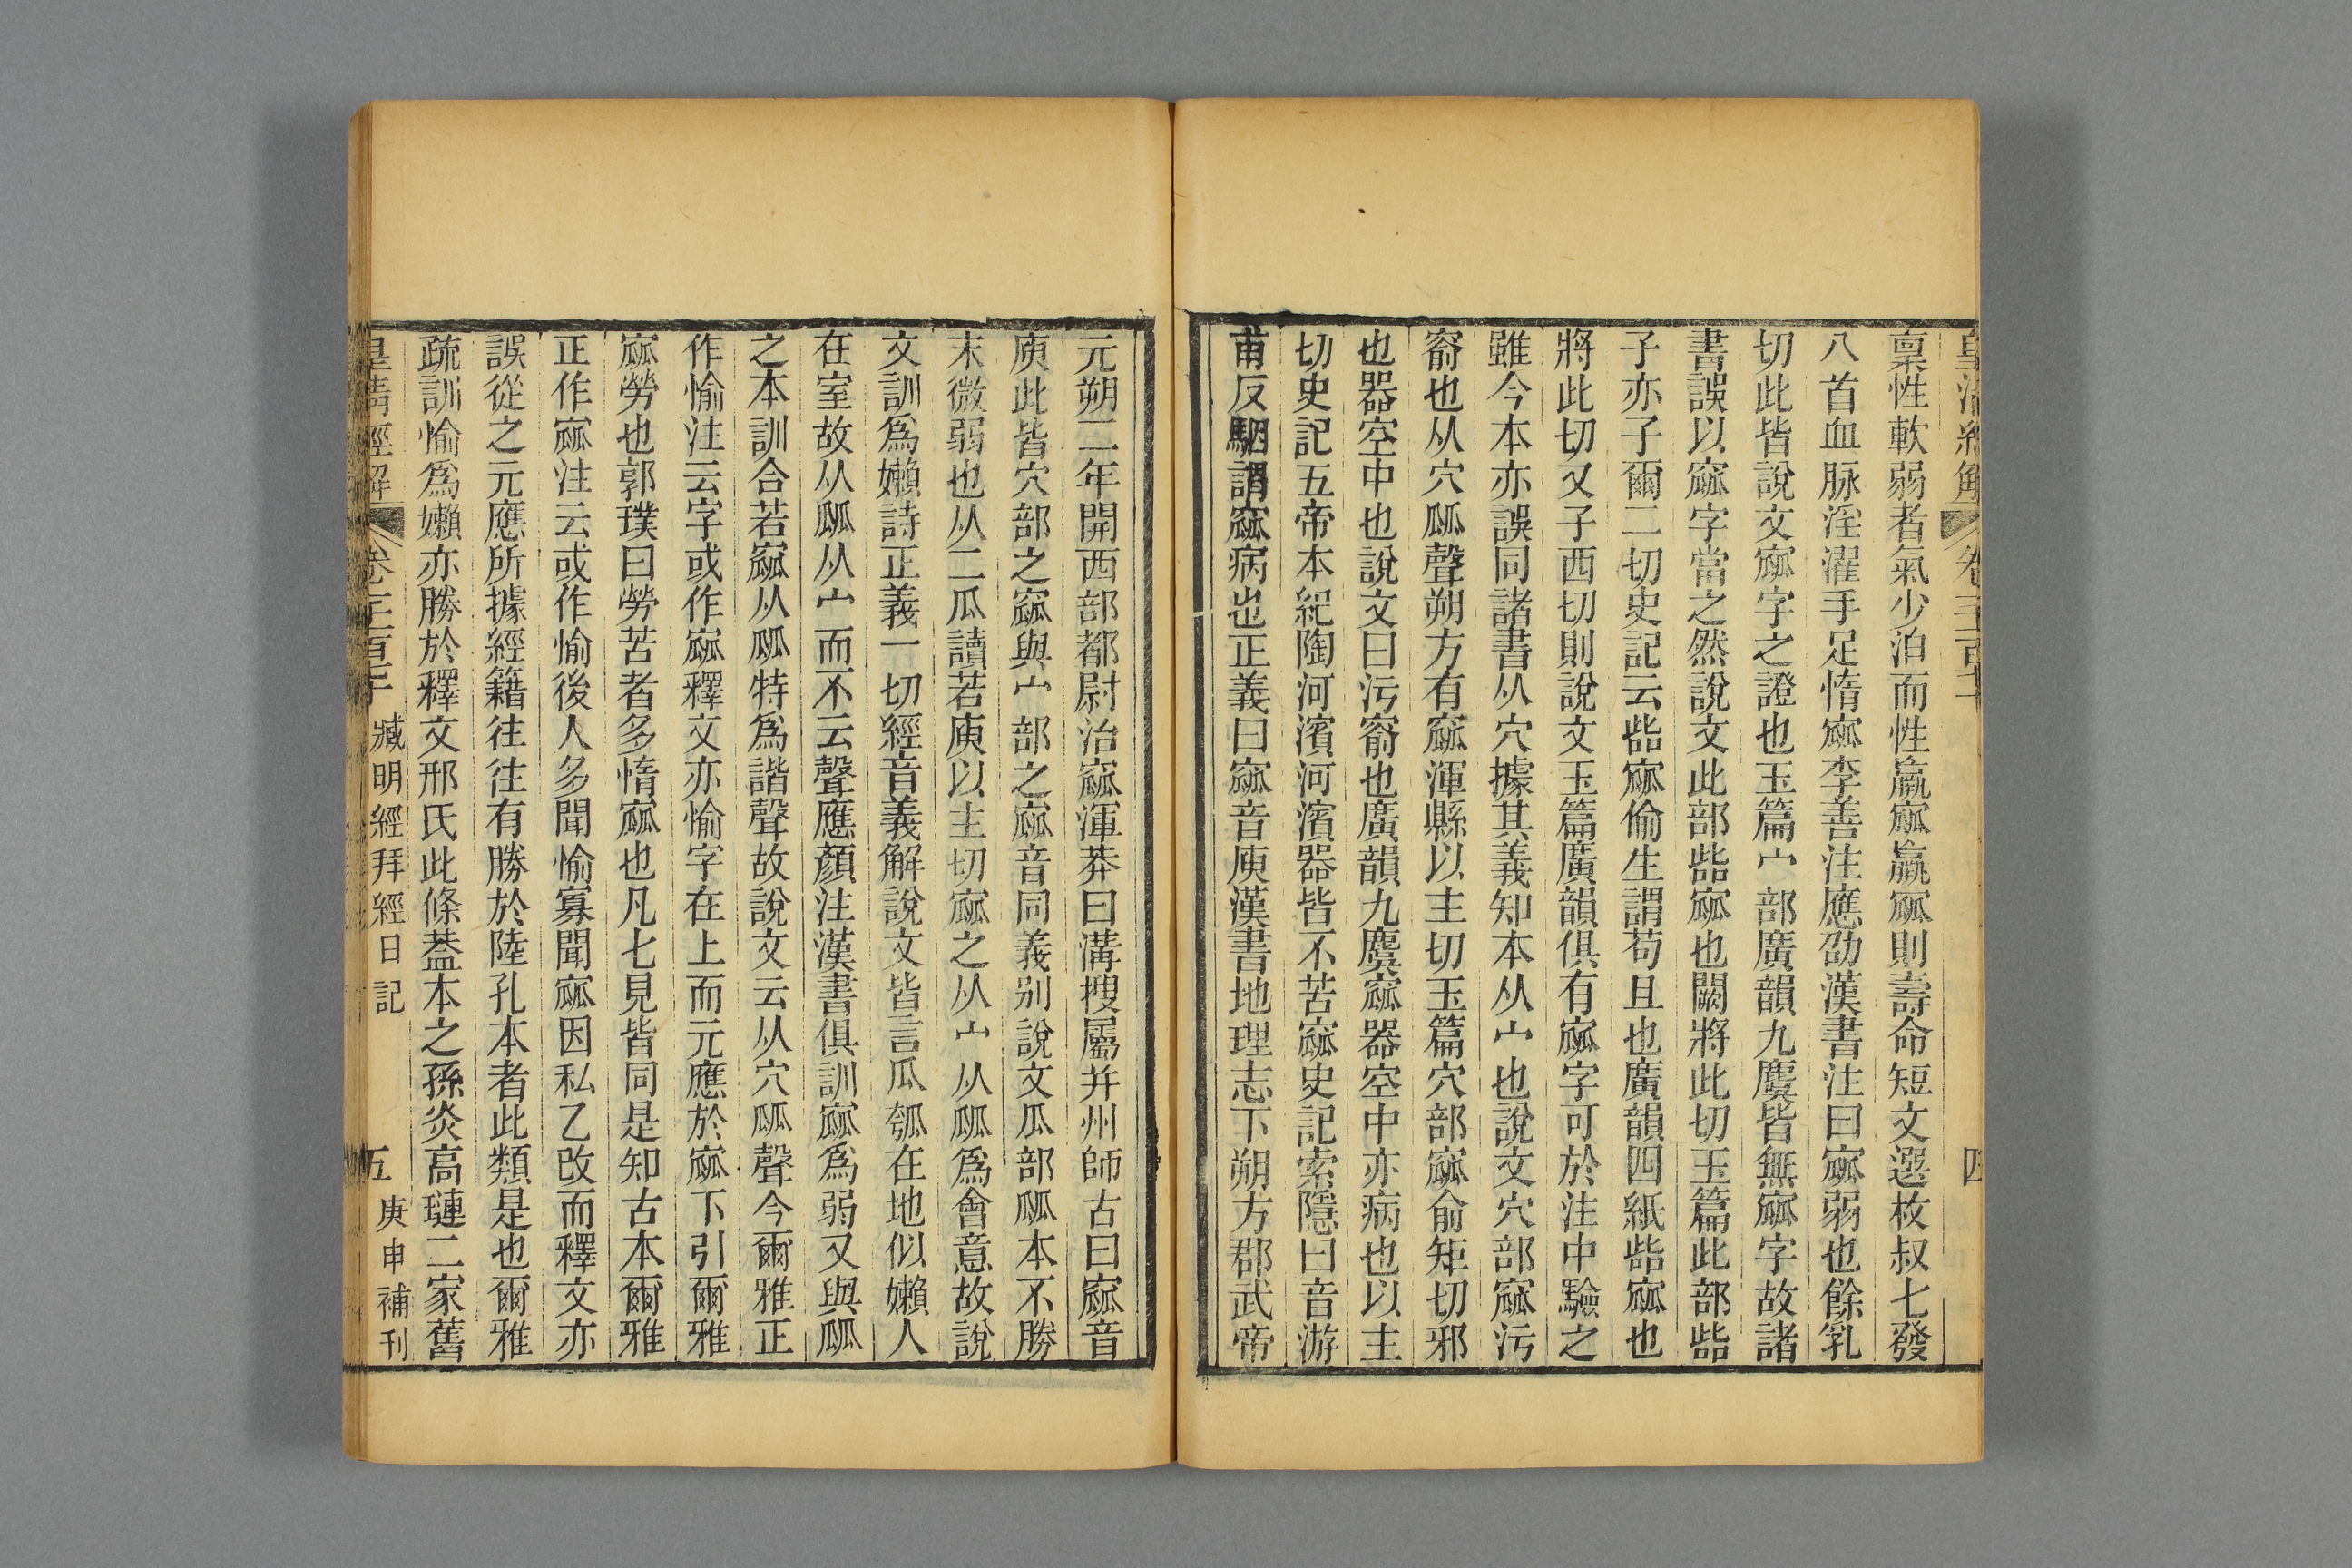 皇清經解 卷三百七十 四
稟性軟弱者氣少泊而性羸㼌羸㼌則壽命短文選枚叔七發
八首血脉淫濯手足惰㼌李善注應劭漢書注曰㼌弱也餘乳
切此皆說文㼌字之證也玉篇宀部廣韻九麌皆無㼌字故諸
書誤以窳字當之然說文此部呰㼌也闕將此切玉篇此部呰
子亦子爾二切史記云呰窳偷生謂苟且也廣韻四紙呰窳也
將此切又子西切則說文玉篇廣韻俱有㼌字可於注中驗之
雖今本亦誤同諸書从穴據其義知本从宀也說文穴部窳污
窬也从穴㼌聲朔方有窳渾縣以主切玉篇穴部窳俞矩切邪
也器空中也說文曰污窬也廣韻九麌窳器空中亦病也以主
切史記五帝本紀陶河濱河濱器皆不苦窳史記索隱曰音游
甫反駰謂窳病也正義曰窳音庾漢書地理志下朔方郡武帝
元朔二年開西部都尉治窳渾莽曰溝搜屬并州師古曰窳音
庾此皆穴部之窳與宀部之㼌音同義别說文瓜部㼌本不勝
末微弱也从二瓜讀若庾以主切㼌之从宀从㼌爲會意故說
文訓爲嬾詩正義一切經音義解說文皆言瓜瓠在地似嬾人
在室故从㼌从宀而不云聲應顏注漢書俱訓㼌爲弱又與㼌
之本訓合若窳从㼌特爲諧聲故說文云从穴㼌聲今爾雅正
作愉注云字或作㼌釋文亦愉字在上而元應於㼌下引爾雅
㼌勞也郭璞曰勞苦者多惰㼌也凡七見皆同是知古本爾雅
正作㼌注云或作愉後人多聞愉寡聞㼌因私乙改而釋文亦
誤從之元應所據經籍往往有勝於陸孔本者此類是也爾雅
疏訓愉爲嬾亦勝於釋文邢氏此條葢本之孫炎高璉二家舊
皇清經解 卷三百七十 臧明經拜經日記 五 庚申補刊